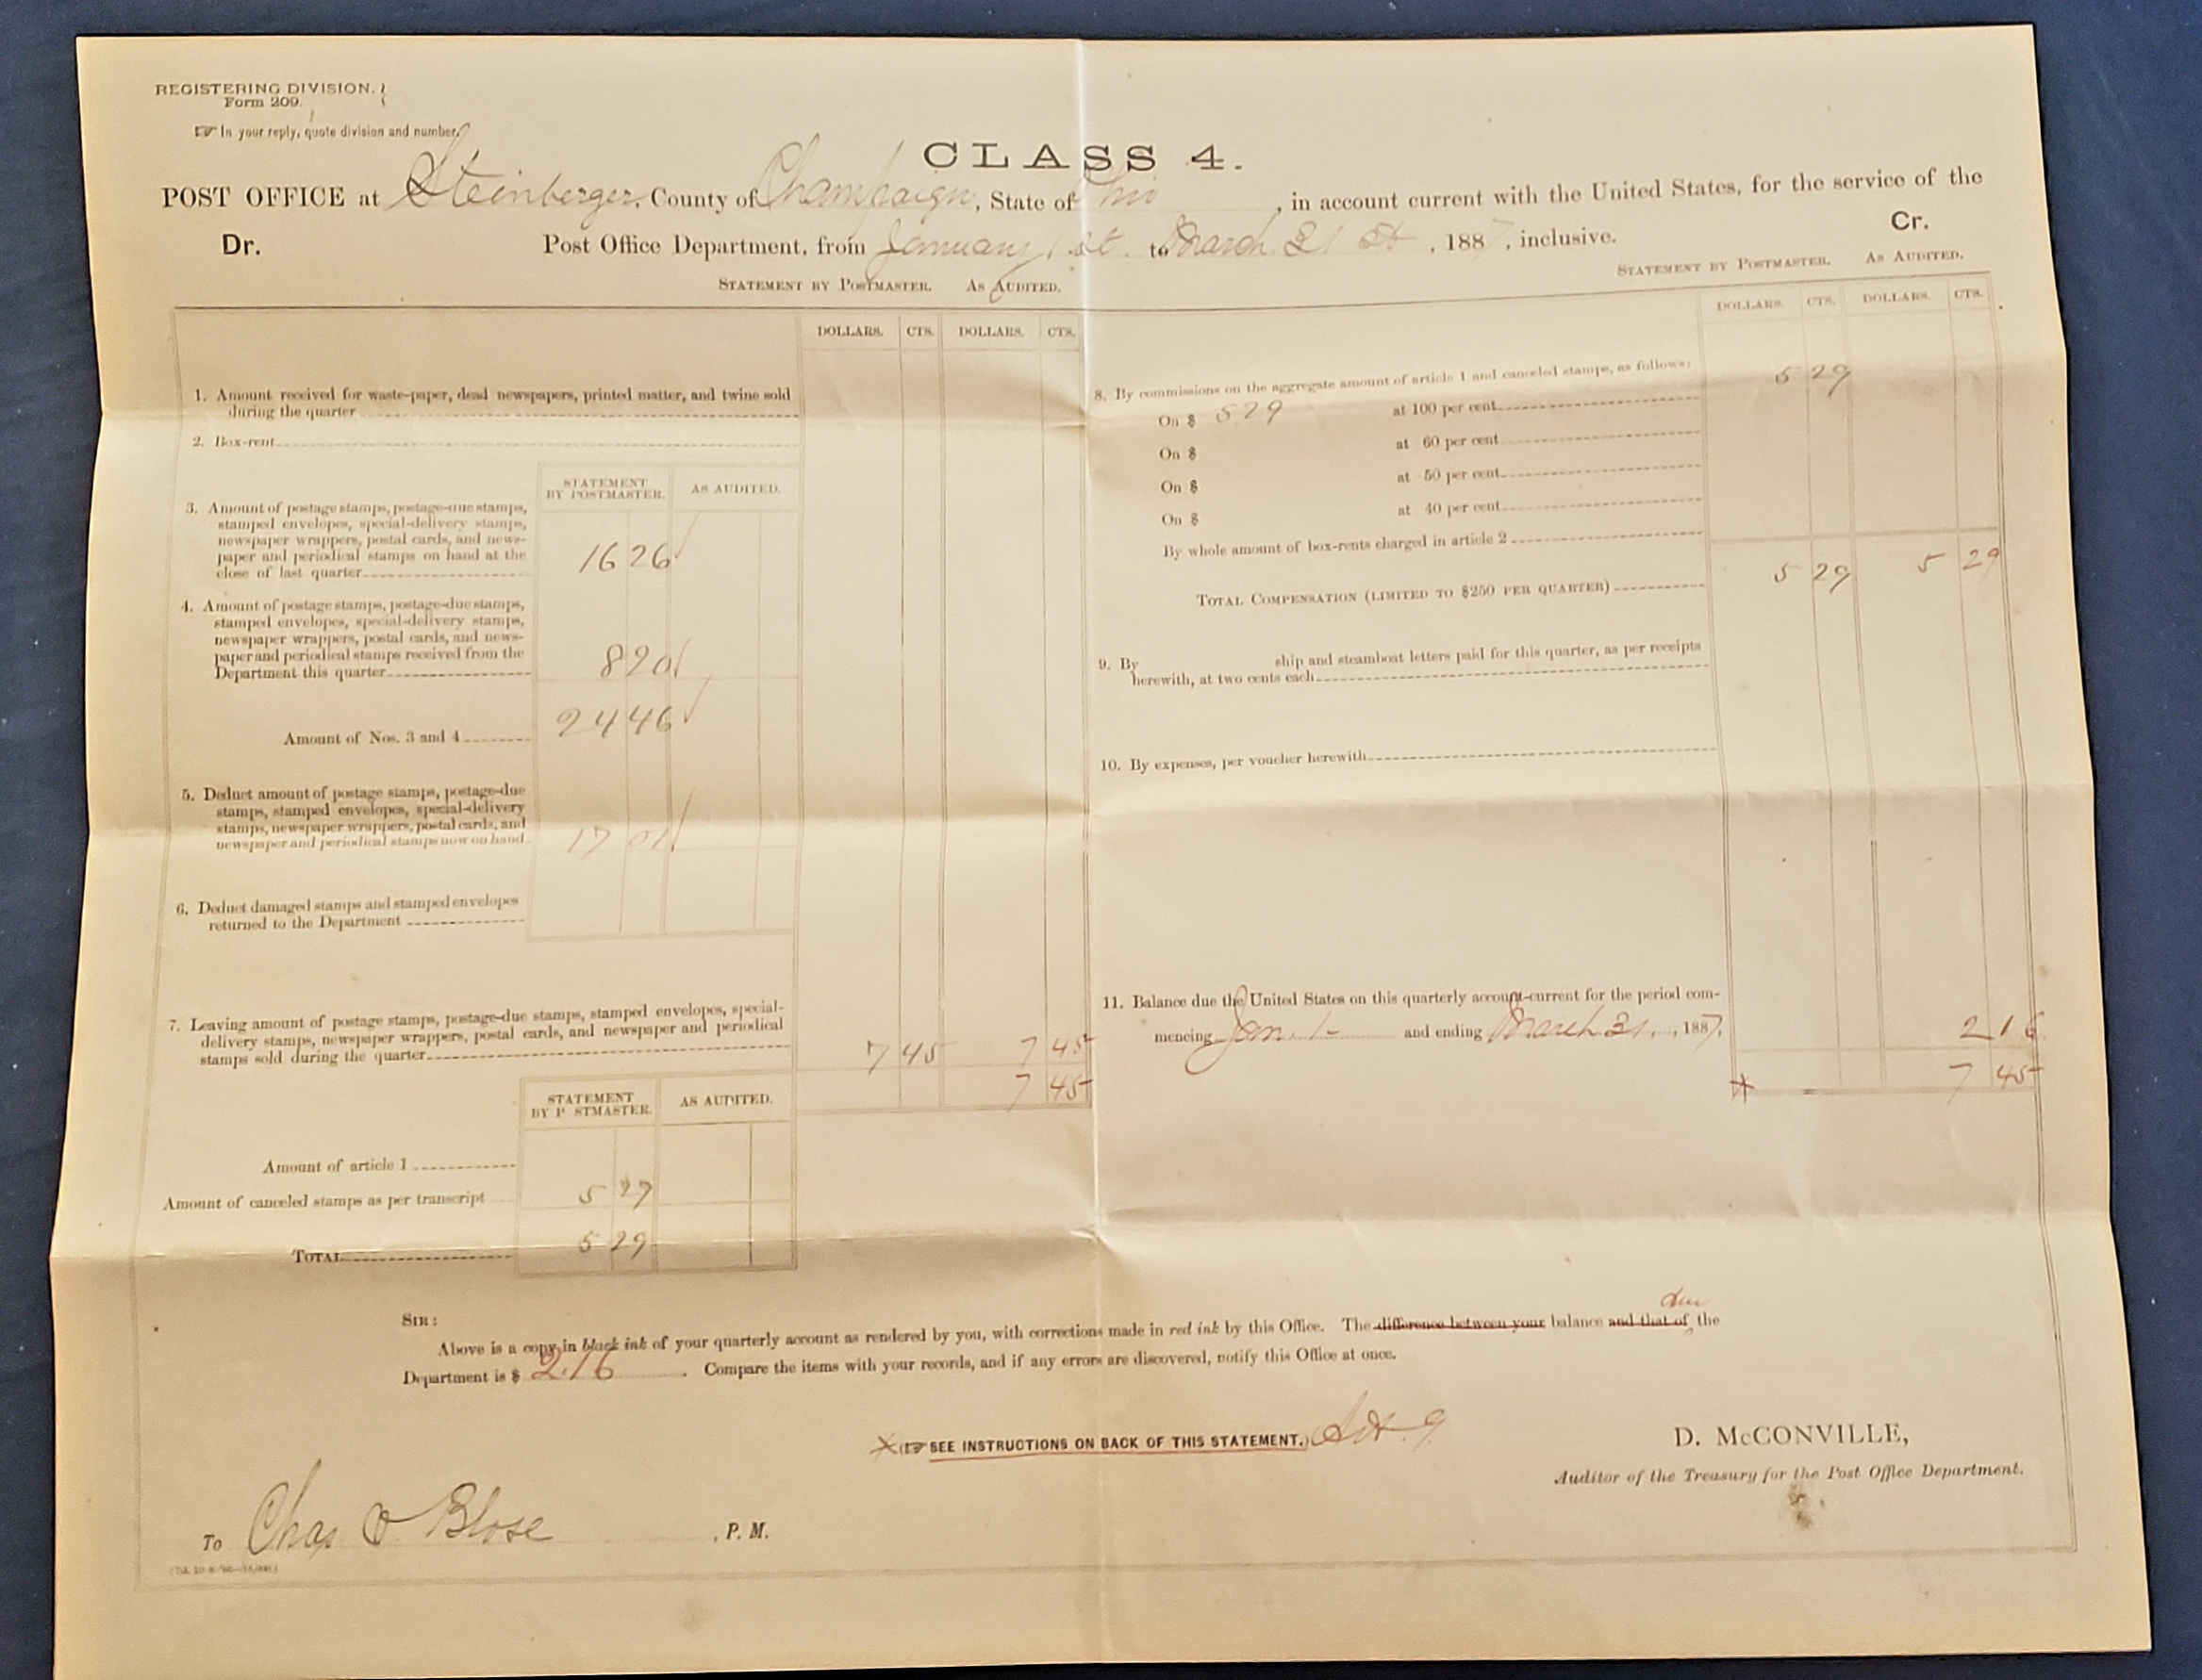 REGISTERING DIVISION.
Form 209.
☞ In your reply, quote division and number.
CLASS 4.
POST OFFICE at Steinberger, County of Champaign, State of Ohio, in account current with the United States, for the service of the
Dr. Post Office Department, from January 1st. to March 31st, 1887, inclusive. Cr.
STATEMENT BY POSTMASTER. AS AUDITED.
DOLLARS. CTS. DOLLARS. CTS.
1. Amount received for waste-paper, dead newspapers, printed matter, and twine sold
during the quarter
2. Box-rent
STATEMENT BY POSTMASTER. AS AUDITED.
3. Amount of postage stamps, postage-due stamps,
stamped envelopes, special-delivery stamps,
newspaper wrappers, postal cards, and news-
paper and periodical stamps on hand at the
close of last quarter 16 26 ✓
4. Amount of postage stamps, postage-due stamps,
stamped envelopes, special-delivery stamps,
newspaper wrappers, postal cards, and news-
paper and periodical stamps received from the
Department this quarter 8 20 ✓
Amount of Nos. 3 and 4 24 46 ✓
5. Deduct amount of postage stamps, postage-due
stamps, stamped envelopes, special-delivery
stamps, newspaper wrappers, postal cards, and
newspaper and periodical stamps now on hand 17 01 ✓
6. Deduct damaged stamps and stamped envelopes
returned to the Department
7. Leaving amount of postage stamps, postage-due stamps, stamped envelopes, special-
delivery stamps, newspaper wrappers, postal cards, and newspaper and periodical
stamps sold during the quarter 7 45 7 45
7 45
STATEMENT BY P STMASTER. AS AUDITED.
Amount of article 1
Amount of canceled stamps as per transcript 5 29
TOTAL 5 29
STATEMENT BY POSTMASTER. AS AUDITED.
DOLLARS. CTS. DOLLARS. CTS.
8. By commissions on the aggregate amount of article 1 and canceled stamps, as follows:
On $ 5.29 at 100 per cent. 5 29
On $ at 60 per cent.
On $ at 50 per cent.
On $ at 40 per cent.
By whole amount of box-rents charged in article 2
TOTAL COMPENSATION (LIMITED TO $250 PER QUARTER) 5 29 5 29
9. By ship and steamboat letters paid for this quarter, as per receipts
herewith, at two cents each
10. By expenses, per voucher herewith
11. Balance due the United States on this quarterly account-current for the period com-
mencing Jan. 1- and ending March 31., 1887. 2 16
7 45
SIR:
due
Above is a copy in black ink of your quarterly account as rendered by you, with corrections made in red ink by this Office. The difference between your balance and that of the
Department is $ 2.16. Compare the items with your records, and if any errors are discovered, notify this Office at once.
(☞ SEE INSTRUCTIONS ON BACK OF THIS STATEMENT.)
D. McCONVILLE,
Auditor of the Treasury for the Post Office Department.
To Chas O. Blose, P. M.